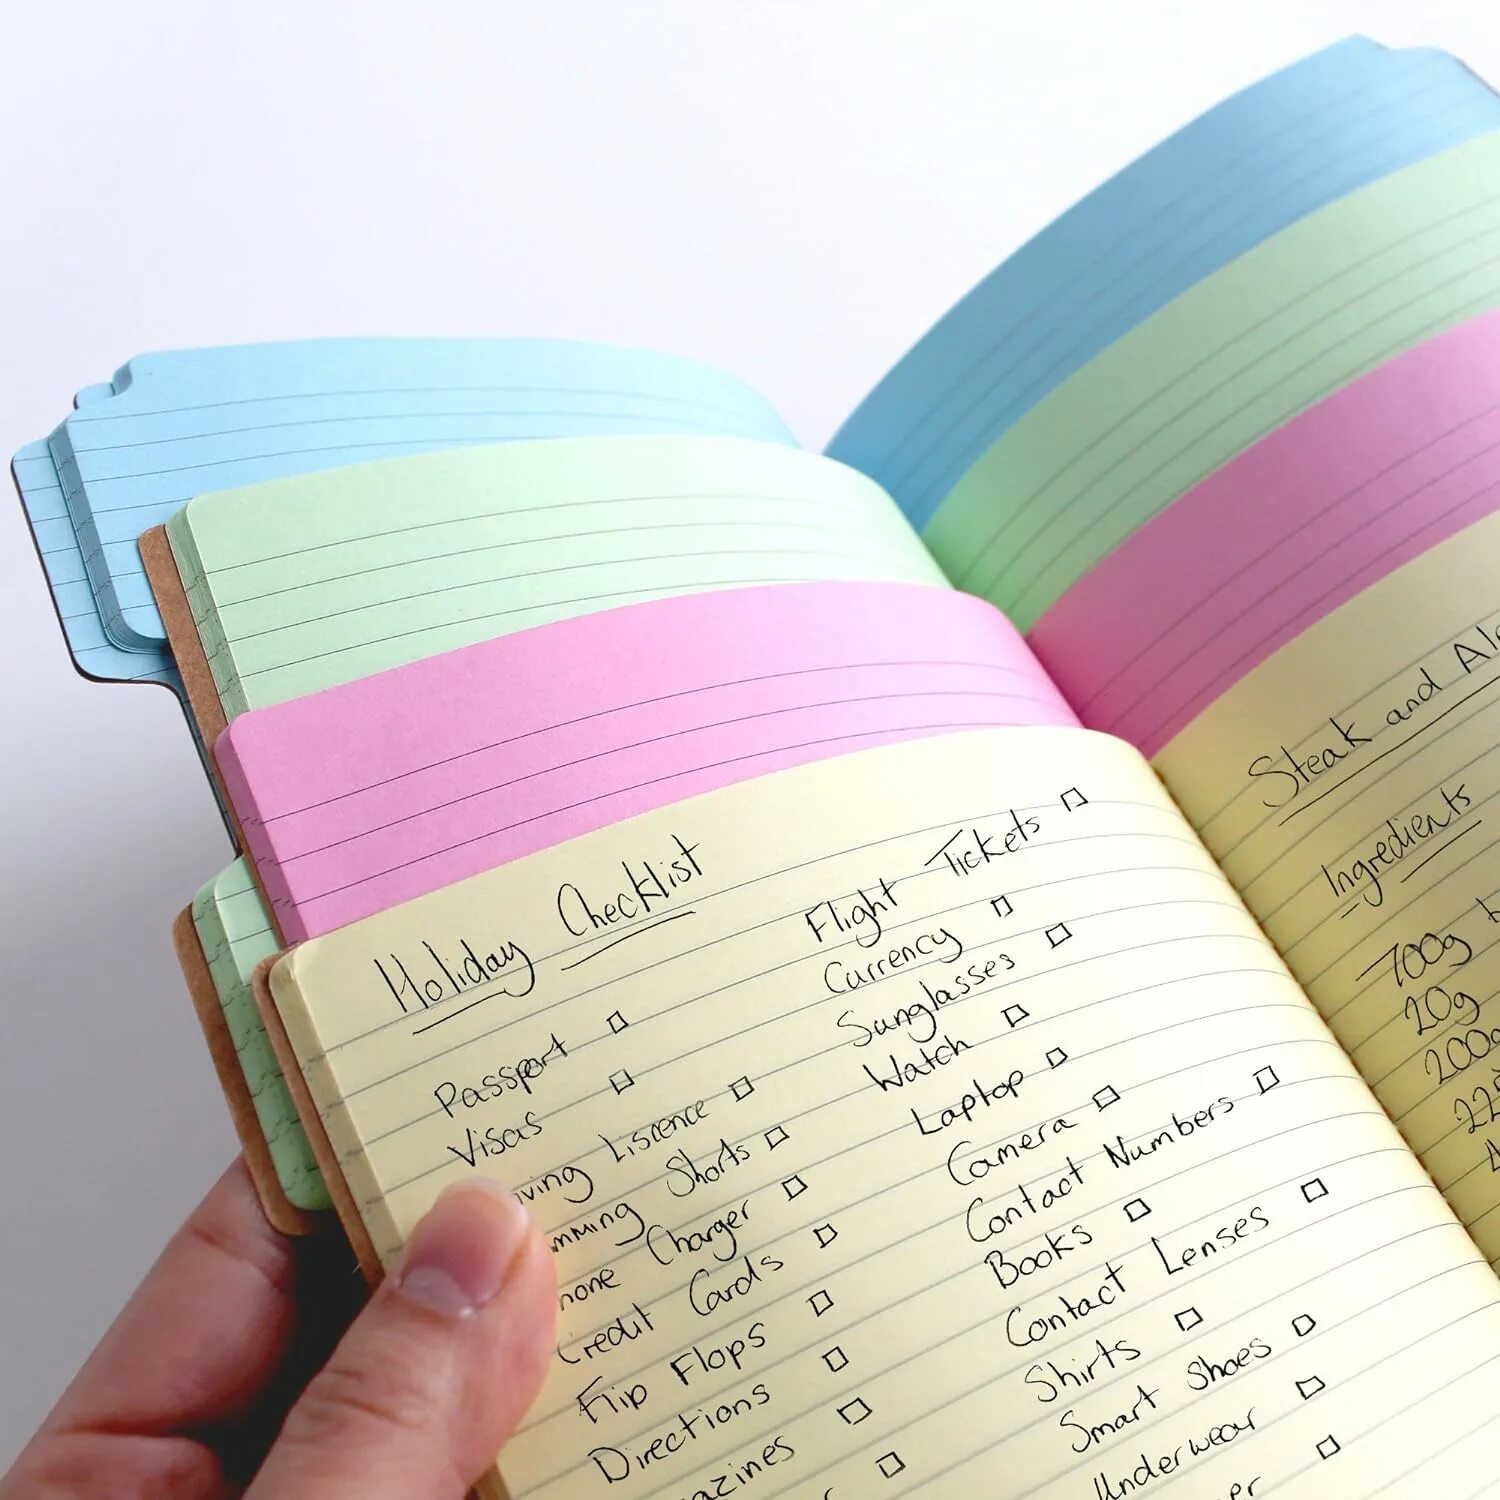 Holiday Checklist
Passport
Visas
Liscence
Shorts
Charger
Credit Cards
Flip Flops
Directions
Flight Tickets
Currency
Sunglasses
Watch
Laptop
Camera
Contact Numbers
Books
Contact Lenses
Shirts
Smart Shoes
Underwear
Steak and
Ingredients
700g
20g
200g